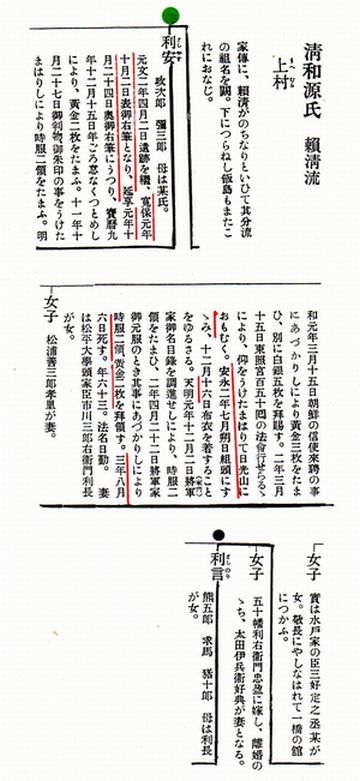 清和源氏 頼清流
上村
家傳に、頼清がのちなりといひて其分流
の祖名を闕。下につらねし飯島もまたこ
れにおなじ。
利安
政次郎 彌三郎 母は某氏。
元文二年四月二日遺跡を繼、寬保元年
十月二日表御右筆となり、延享元年十
月二十四日奥御右筆にうつり、寶曆九
年十二月十五日年ごろ怠なくつとめし
により、黃金二枚をたまふ。十一年十
月二十七日御判物御朱印の事をうけた
まはりしにより時服二領をたまふ。明
和元年三月十五日朝鮮の信使來聘の事
にあづかりしにより黃金三枚をたま
ひ、別に白銀五枚を拜賜す。二年三月
十五日東照宮百五十囘の法會行せらるゝ
により、仰をうけたまはりて日光山に
おもむく。安永二年七月朔日組頭にす
ゝみ、十二月十六日布衣を着すること
をゆるさる。天明元年十二月二日將軍
家御名目錄を調進せしにより、時服二
領をたまひ、二年四月二十二日將軍家
御元服のとき其事にあづかりしにより
時服二領、黃金二枚を拜領す。三年八月
六日死す。年六十三。法名日勤。 妻
は松平大學頭家臣市川三郎右衛門利長
が女。
女子 松浦善三郎孝里が妻。
女子
實は水戶家の臣三好定之丞某が
女。敬長にやしなはれて一橋の館
につかふ。
女子
五十幡利右衛門忠盈に嫁し、離婚の
ゝち、太田伊兵衛好典が妻となる。
利言
熊五郎 求馬 猪十郎 母は利長
が女。